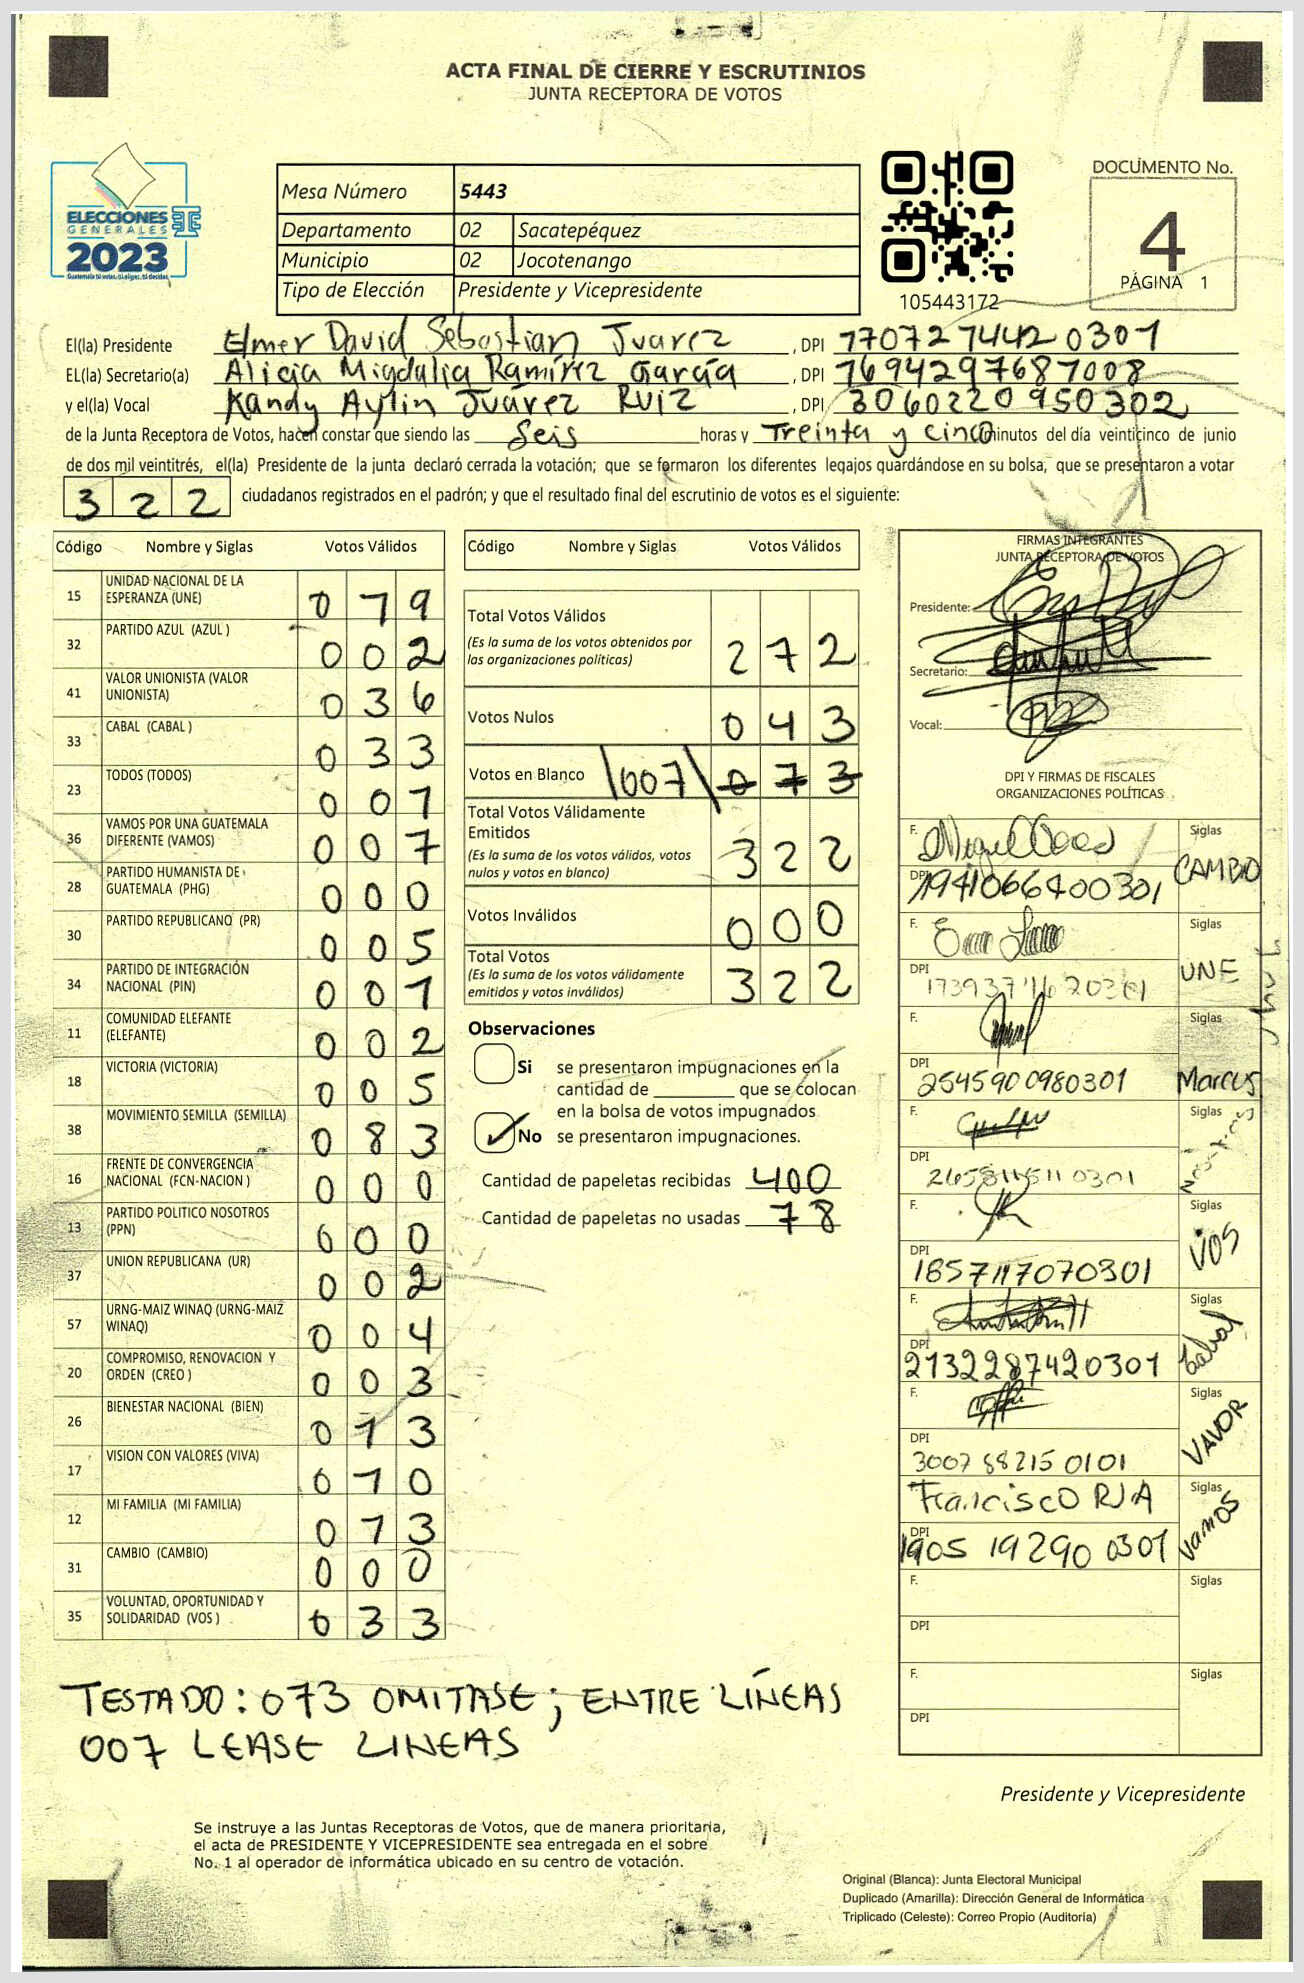 ACTA FINAL DE CIERRE Y ESCRUTINIOS
JUNTA RECEPTORA DE VOTOS
ELECCIONES
GENERALES
2023
Mesa Número 5443
Departamento 02 Sacatepéquez
Municipio 02 Jocotenango
Tipo de Elección Presidente y Vicepresidente
105443172
DOCUMENTO No.
4
PÁGINA 1
El(la) Presidente Elmer David Sebastian Juarez, DPI 1707274420301
EL(la) Secretario(a) Alicia Migdalia Ramírez García, DPI 1694297687008
y el(la) Vocal Kandy Aylin Juárez Ruiz, DPI 3060220950302
de la Junta Receptora de Votos, hacen constar que siendo las Seis horas y Treinta y cinco minutos del día veinticinco de junio
de dos mil veintitrés, el(la) Presidente de la junta declaró cerrada la votación; que se formaron los diferentes legajos guardándose en su bolsa, que se presentaron a votar
322 ciudadanos registrados en el padrón; y que el resultado final del escrutinio de votos es el siguiente:
Código Nombre y Siglas Votos Válidos
15 UNIDAD NACIONAL DE LA ESPERANZA (UNE) 079
32 PARTIDO AZUL (AZUL ) 002
41 VALOR UNIONISTA (VALOR UNIONISTA) 036
33 CABAL (CABAL ) 033
23 TODOS (TODOS) 001
36 VAMOS POR UNA GUATEMALA DIFERENTE (VAMOS) 007
28 PARTIDO HUMANISTA DE GUATEMALA (PHG) 000
30 PARTIDO REPUBLICANO (PR) 005
34 PARTIDO DE INTEGRACIÓN NACIONAL (PIN) 001
11 COMUNIDAD ELEFANTE (ELEFANTE) 002
18 VICTORIA (VICTORIA) 005
38 MOVIMIENTO SEMILLA (SEMILLA) 083
16 FRENTE DE CONVERGENCIA NACIONAL (FCN-NACION ) 000
13 PARTIDO POLITICO NOSOTROS (PPN) 000
37 UNION REPUBLICANA (UR) 002
57 URNG-MAIZ WINAQ (URNG-MAIZ WINAQ) 004
20 COMPROMISO, RENOVACION Y ORDEN (CREO ) 003
26 BIENESTAR NACIONAL (BIEN) 013
17 VISION CON VALORES (VIVA) 010
12 MI FAMILIA (MI FAMILIA) 013
31 CAMBIO (CAMBIO) 000
35 VOLUNTAD, OPORTUNIDAD Y SOLIDARIDAD (VOS ) 033
Código Nombre y Siglas Votos Válidos
Total Votos Válidos 272
(Es la suma de los votos obtenidos por
las organizaciones políticas)
Votos Nulos 043
Votos en Blanco 007 073
Total Votos Válidamente
Emitidos 322
(Es la suma de los votos válidos, votos
nulos y votos en blanco)
Votos Inválidos 000
Total Votos 322
(Es la suma de los votos válidamente
emitidos y votos inválidos)
Observaciones
Si se presentaron impugnaciones en la
cantidad de ________ que se colocan
en la bolsa de votos impugnados
No se presentaron impugnaciones.
Cantidad de papeletas recibidas 400
Cantidad de papeletas no usadas 78
FIRMAS INTEGRANTES
JUNTA RECEPTORA DE VOTOS
Presidente:
Secretario:
Vocal:
DPI Y FIRMAS DE FISCALES
ORGANIZACIONES POLÍTICAS
F. Siglas
DPI 1941066400301 CAMBIO
F. Siglas
DPI UNE
F. Siglas
DPI 2545900980301 Marcus
F. Siglas
DPI
F. Siglas
DPI 1857117070301 VOS
F. Siglas
DPI 2132287420301 Cabal
F. Siglas
DPI 3007882150101 VAVOR
F. Francisco RJA Siglas
DPI 1905 19290 0301 VAMOS
F. Siglas
DPI
F. Siglas
DPI
TESTADO: 073 OMITASE; ENTRE LÍNEAS
007 LEASE LINEAS
Presidente y Vicepresidente
Se instruye a las Juntas Receptoras de Votos, que de manera prioritaria,
el acta de PRESIDENTE Y VICEPRESIDENTE sea entregada en el sobre
No. 1 al operador de informática ubicado en su centro de votación.
Original (Blanca): Junta Electoral Municipal
Duplicado (Amarilla): Dirección General de Informática
Triplicado (Celeste): Correo Propio (Auditoría)